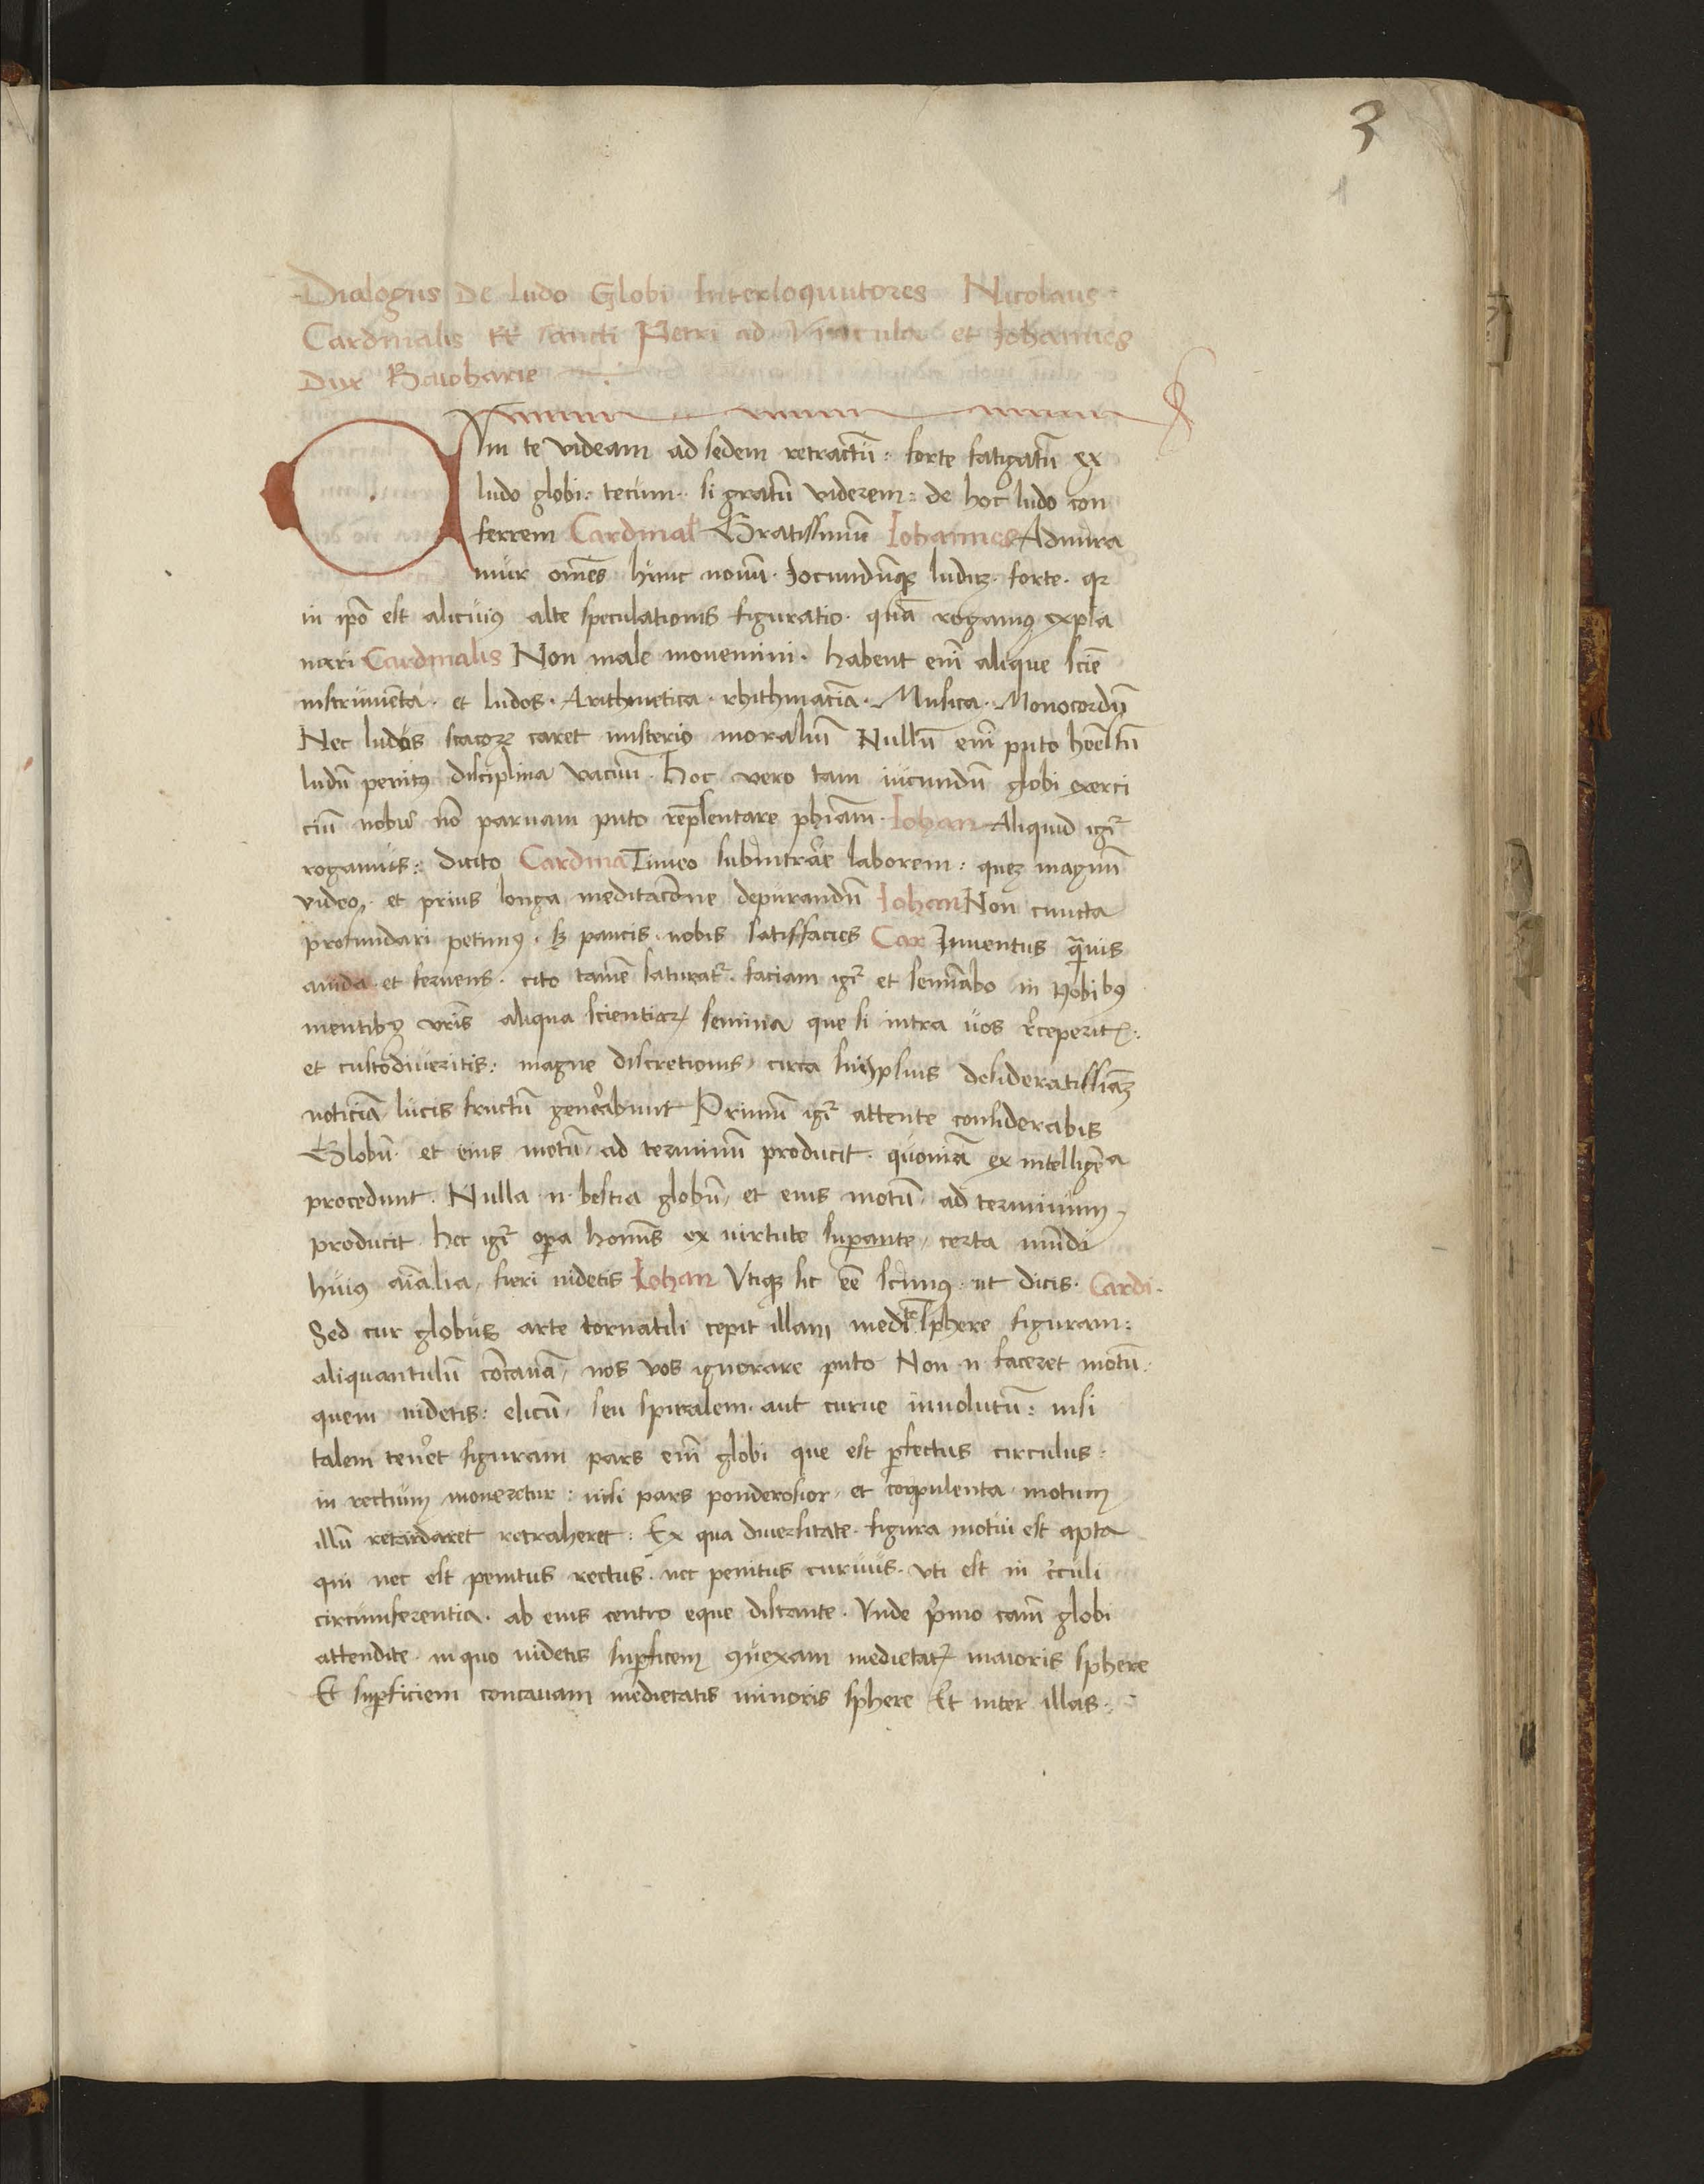 3
1
Dialogus De ludo Globi Interloquutores Nicolaus
Cardinalis tt̄ sancti Petri ad Vincula et Iohannes
Dux Baioharie
QVm te videam ad sedem retractū : forte fatigatū ex
ludo globi · tecum · si gratū viderem : de hoc ludo con
ferrem Cardinal̄ Gratissimū Iohannes Admira
mur om̄es hunc nouū · Iocundūqꝫ ludū · forte · qꝛ
in ip̄o est alicuiꝰ alte speculationis figuratio · quā rogamꝰ expla
nari Cardinalis Non male mouemini · habent eni᷒ alique scīe
instrumēta · et ludos · Arithmetica · rhithmaciā · Musica · Monocordū
Nec ludus scacoꝝ caret misterio moraliū Nullū eni᷒ puto honēstū
ludū penitꝰ disciplina vacuū · hoc vero tam iucundū globi exerci
ciū nobis nō paruam puto rep̄sentare ph̄iam · Iohan Aliquid igr̄
rogamus : dicito Cardina Timeo subintrare laborem : quēꝫ magnū
video · et prius longa meditac̄one depurandū Iohan Non cuncta
profundari petimꝰ · sꝫ paucis nobis satisfacies Car Iuuentus quāuis
auida et feruens · cito tamē saturat᷒ · faciam igr̄ et semīabo in nobibꝰ
mentibꝰ vr̄is aliqua scientiaꝝ semina que si intra vos r̄ceperitꝭ ·
et custodiueritis : magne discretionis circa suiipsius desideratissiāꝫ
noticiā lucis fructū gen̄abunt Primū igr̄ attente considerabis
Globū · et eius motū ad terminū producit · quoniā ex intelligēa
procedunt · Nulla ·n· bestia globū et eius motū ad terminum
producit hec igr̄ oꝑa homīs ex virtute suꝑante certa mūdi
huiꝰ aīalia fieri uidetis Iohan Vtiqꝫ sic eē scimꝰ ut dicis · Cardi ·
Sed cur globus arte tornatili cepit illam medītē sphere figuram :
aliquantulū cōcauā nos vos ignorare puto Non ·n· faceret motū ·
quem uidetis : elicū seu spiralem aut curue inuolutū : nisi
talem ten̄et figuram pars eni᷒ globi que est ꝑfectus circulus :
in rectum moueretur : nisi pars ponderosior et corpulenta motum
illū retardaret retraheret : Ex qua diuersitate figura motui est apta
qui nec est penitus rectus · nec penitus curuus · vti est in c̄culi
circumferentia · ab eius centro eque distante · Vnde p̄mo cām globi
attendite in quo uidetis suꝑficem ꝯuexam medietatꝭ maioris sphere
Et suꝑficiem concauam medietatis minoris sphere Et inter illas ·